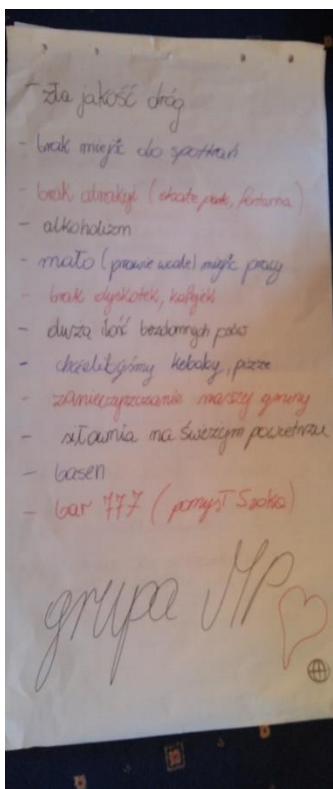 - zła jakość dróg
- brak miejsc do spotkań
- brak atrakcji (skate park, fontanna)
- alkoholizm
- mało (prawie wcale) miejsc pracy
- brak dyskotek, kafejek
- duża ilość bezdomnych psów
- chcielibyśmy kebaby, pizze
- zanieczyszczanie naszej gminy
- siłownia na świeżym powietrzu
- basen
- bar 777 (pomysł Szoka)
grupa MP